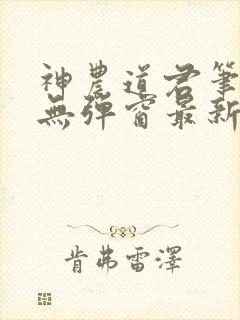 神農道君筆
無彈窗最新
肯弗雷澤